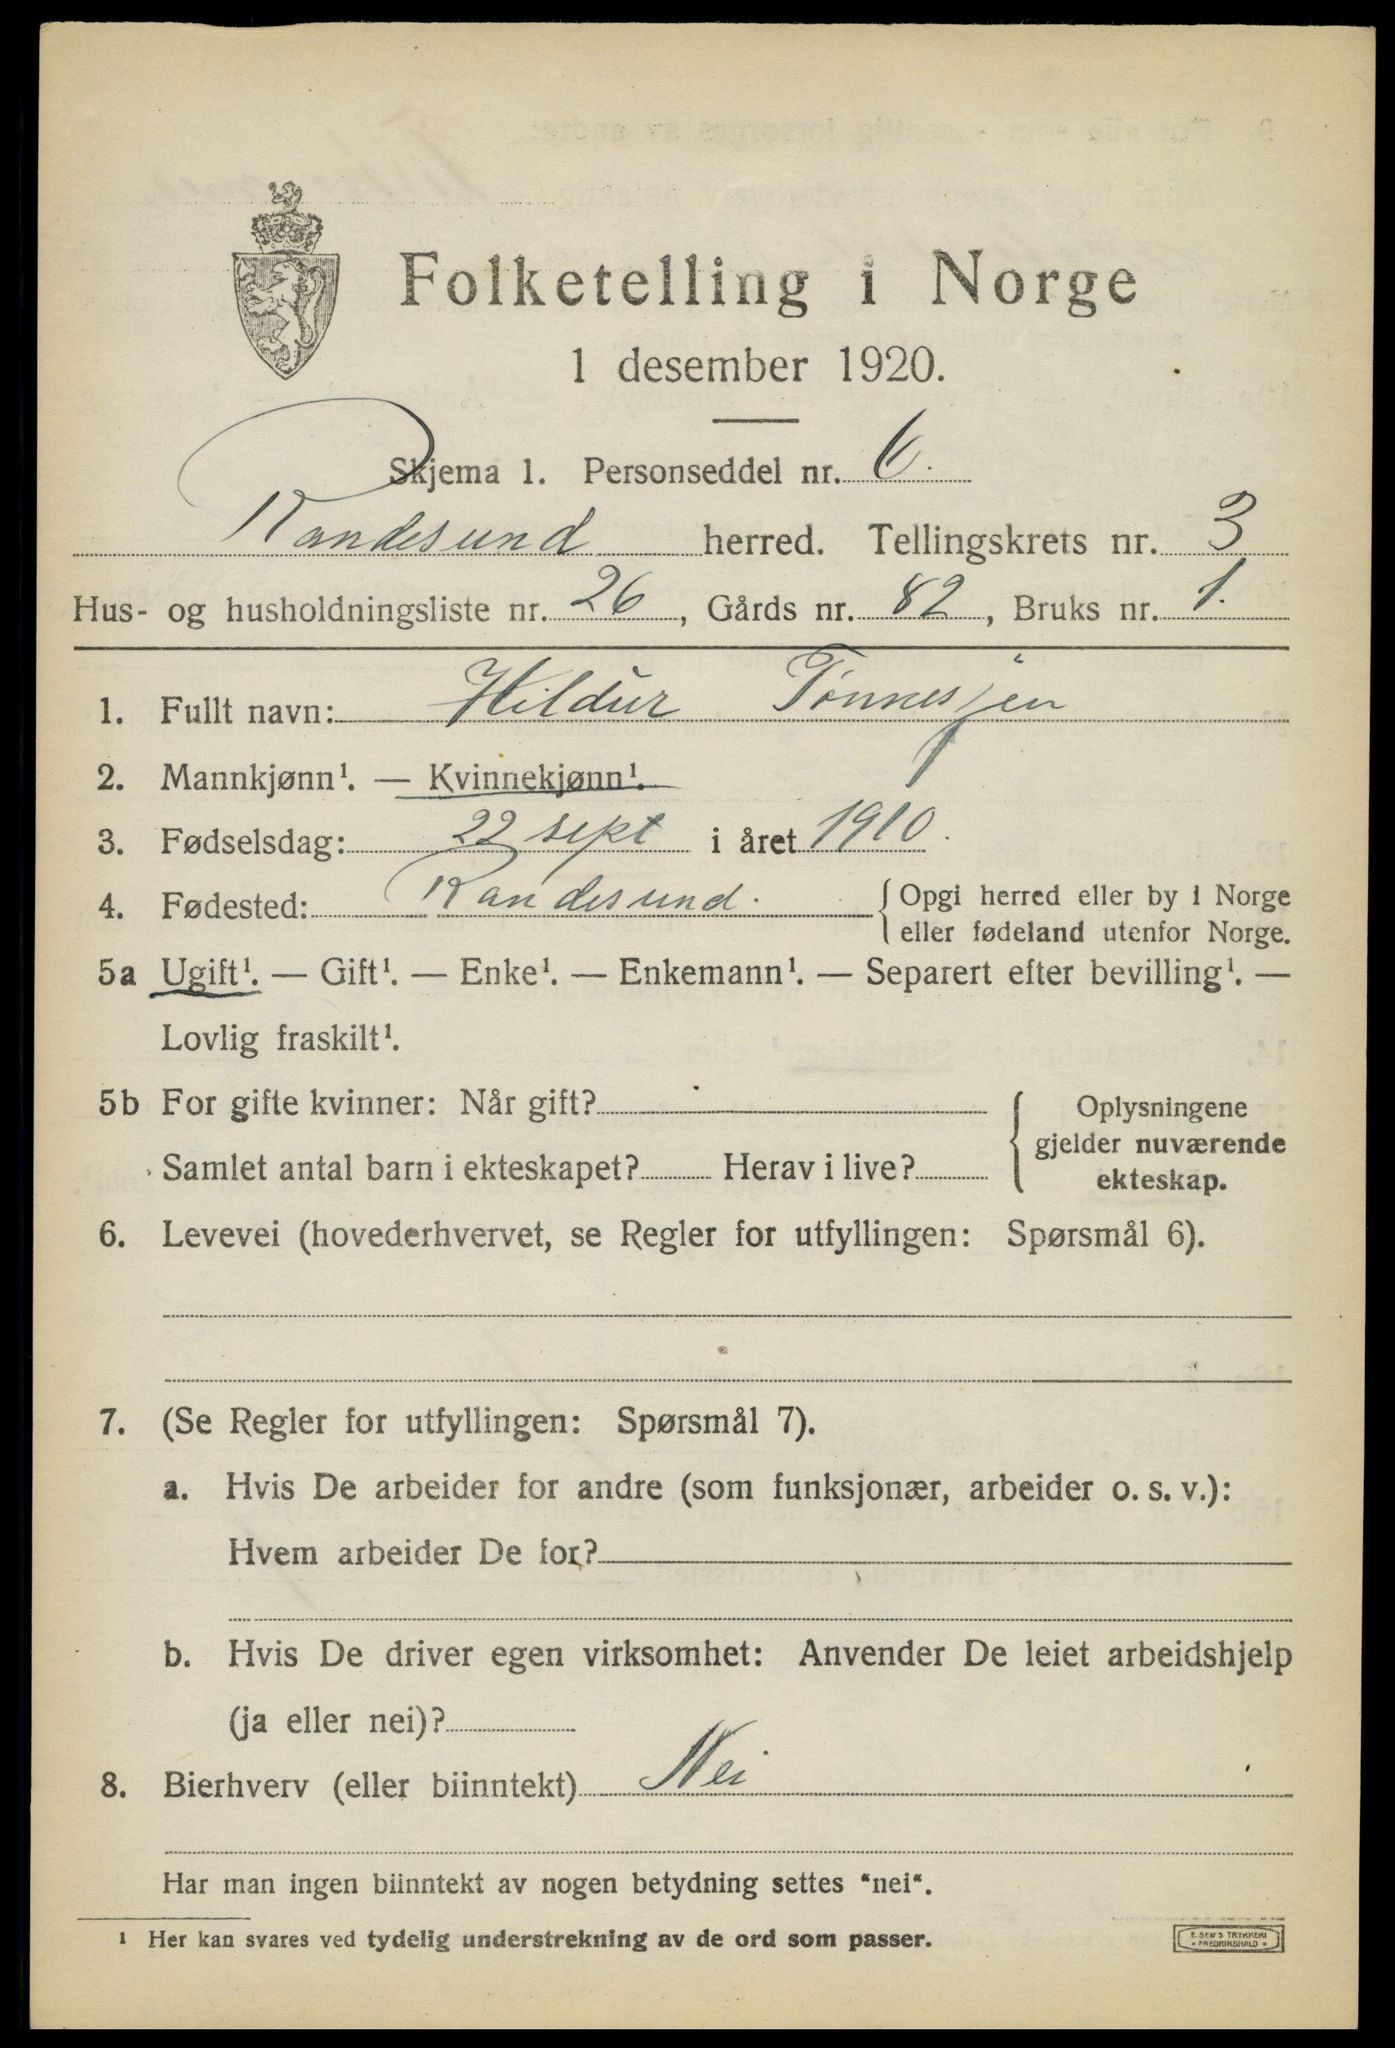 Folketelling i Norge
1 desember 1920.
Skjema 1. Personseddel nr. 6.
Randesund herred. Tellingskrets nr. 3
Hus- og husholdningsliste nr. 26, Gårds nr. 82, Bruks nr. 1.
1. Fullt navn: Hildur Tønnesjen
2. Mannkjønn¹. — Kvinnekjønn¹.
3. Fødselsdag: 22 sept i året 1910.
4. Fødested: Randesund. { Opgi herred eller by i Norge
eller fødeland utenfor Norge.
5a Ugift¹. — Gift¹. — Enke¹. — Enkemann¹. — Separert efter bevilling¹. —
Lovlig fraskilt¹.
5b For gifte kvinner: Når gift? { Oplysningene
gjelder nuværende
Samlet antal barn i ekteskapet? Herav i live? ekteskap.
6. Levevei (hovederhvervet, se Regler for utfyllingen: Spørsmål 6).
7. (Se Regler for utfyllingen: Spørsmål 7).
a. Hvis De arbeider for andre (som funksjonær, arbeider o. s. v.):
Hvem arbeider De for?
b. Hvis De driver egen virksomhet: Anvender De leiet arbeidshjelp
(ja eller nei)?
8. Bierhverv (eller biinntekt) Nei
Har man ingen biinntekt av nogen betydning settes "nei".
¹ Her kan svares ved tydelig understrekning av de ord som passer.
E. SEM'S TRYKKERI
• FREDRIKSHALD •